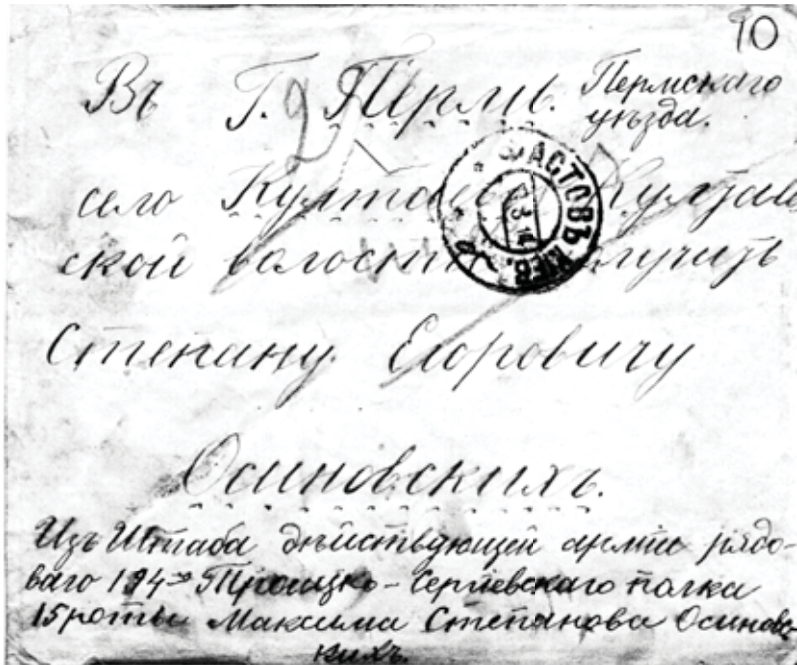 10
Въ Г. Пермь. Пермскаго
уѣзда.
село Култаево Култаев
ской волости получить
ФАСТОВЪ КІЕВ.
Степану Егоровичу
Осиновскихъ.
Изъ Штаба дѣйствующей арміи рядо-
ваго 194го Троицко-Сергіевскаго полка
15 роты Максима Степанова Осиновс-
кихъ.